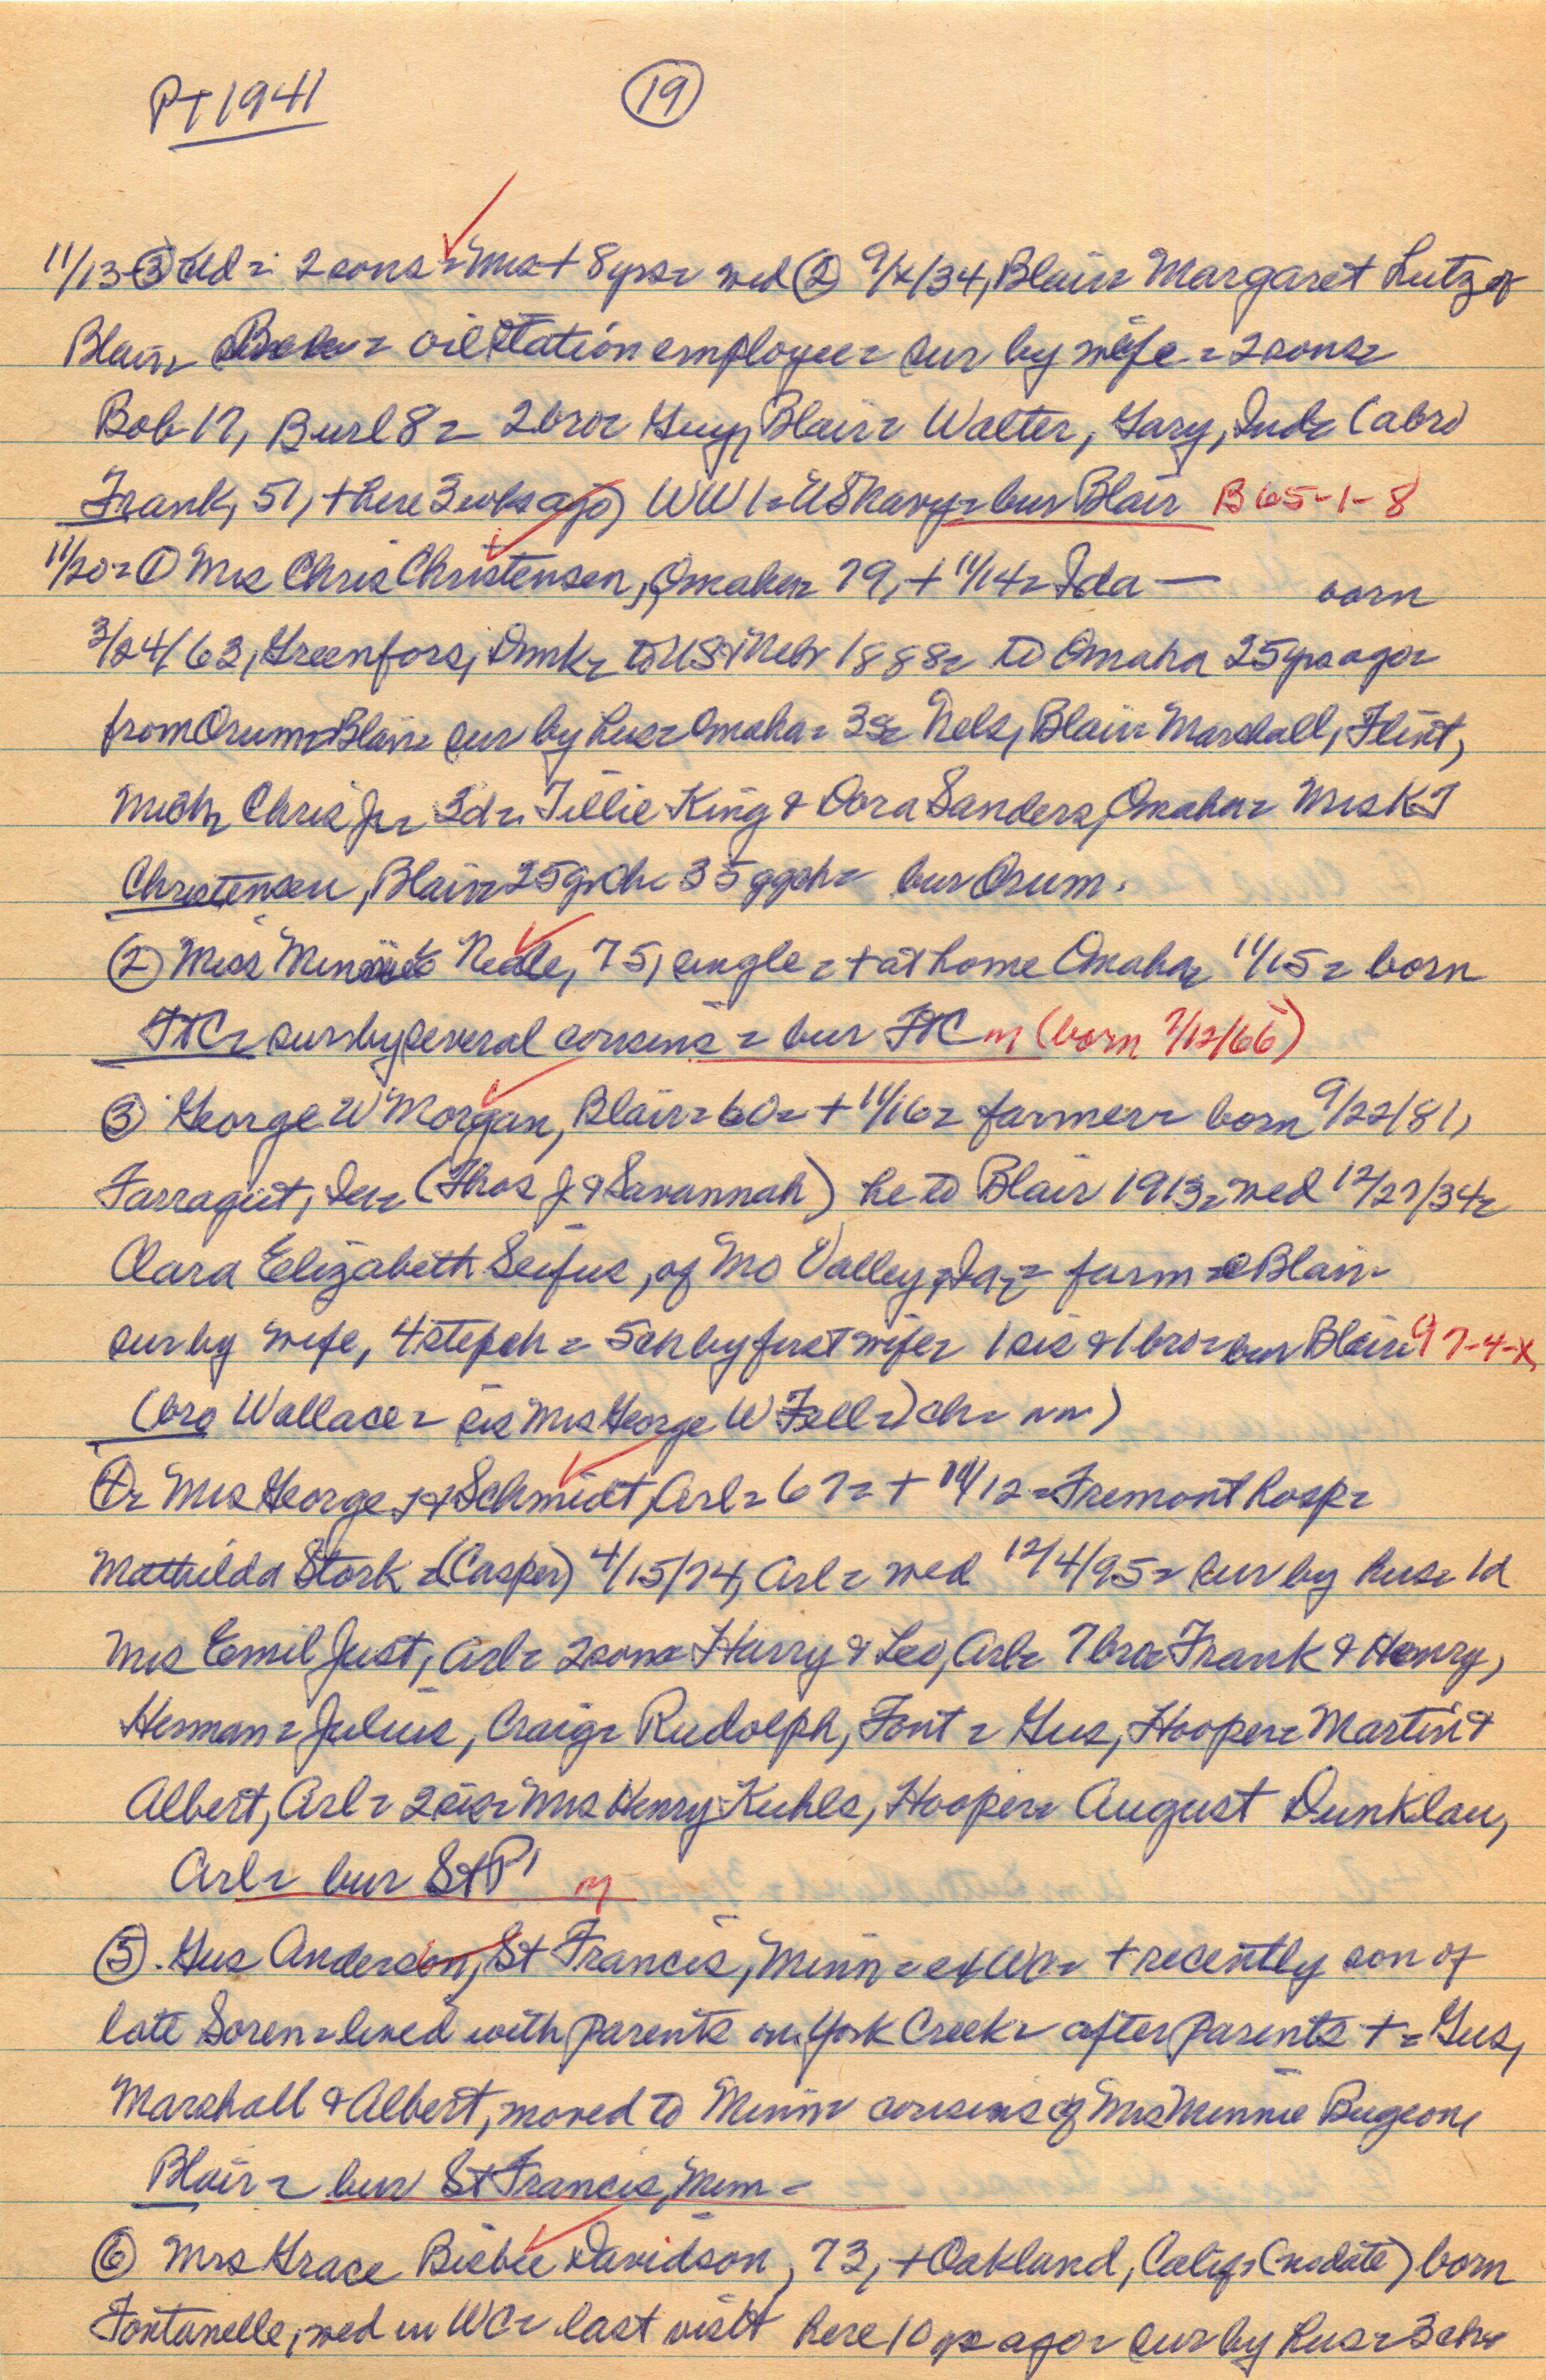 PT 1941
19
11/13 - 3 2 sons = Mrs + 8 yrs = wed 2 34, Blair = Margaret Lutz of
Blair = oil station employee = sur by wife = 2 sons =
Bob 17, Burl 8 = 2 bro = Guy, Blair = Walter, Gary, Ind = (a bro
Frank, 51, + here 3 wks ago) WW 1 = US Navy = bur Blair B 65-1-8
11/20 = 1 Mrs Chris Christensen, Omaha = 79, + 11/14 = Ida — born
3/24/62, Greenfors, Dnmk = to US & Nebr 1888 = to Omaha 25 yrs ago =
from Orum = Blair = sur by hus = Omaha = 3s = Nels, Blair = Marshall, Flint,
Mich = Chris Jr = 3d = Tillie King & Dora Sanders, Omaha = Mrs K T
Christensen, Blair = 25 grch = 35 ggch = bur Orum.
2 Miss Minnie Neale, 75, single = + at home Omaha = 11/15 = born
FtC = sur by several cousins = bur FtC m (born 7/12/66)
3 George W Morgan, Blair = 60 = + 11/16 = farmer = born 9/22/81,
Farragut, Ia = (Thos J & Savannah) he to Blair 1913 = wed 12/27/34 =
Clara Elizabeth Seifus, of Mo Valley, Ia = farm = Blair =
sur by wife, 4 stepch = 5 ch by first wife = 1 sis & 1 bro = bur Blair 97-4-X
(bro Wallace = sis Mrs George W Fell =) ch = nn)
4 = Mrs George H Schmidt, Arl = 67 = + 11/12 = Fremont hosp =
Mathilda Stork = (Casper) 4/15/74, Arl = wed 12/4/95 = sur by hus = 1d
Mrs Emil Just, Arl = 2 sons = Harry & Leo, Arl = 7 bro = Frank & Henry,
Herman = Julius, Craig = Rudolph, Font = Gus, Hooper = Martin &
Albert, Arl = 2 sis = Mrs Henry Kuhls, Hooper = August Dunklau,
Arl = bur St P' m
5. Gus Anderson, St Francis, Minn = exWC = + recently son of
late Soren = lived with parents on York Creek = after parents + = Gus,
Marshall & Albert, moved to Minn = cousins of Mrs Minnie Bugeon,
Blair = bur St Francis, Minn =
6 Mrs Grace Bisbee Davidson, 73, + Oakland, Calif = (no date) born
Fontanelle, wed in WC = last visit here 10 yrs ago = sur by hus = 3 ch =